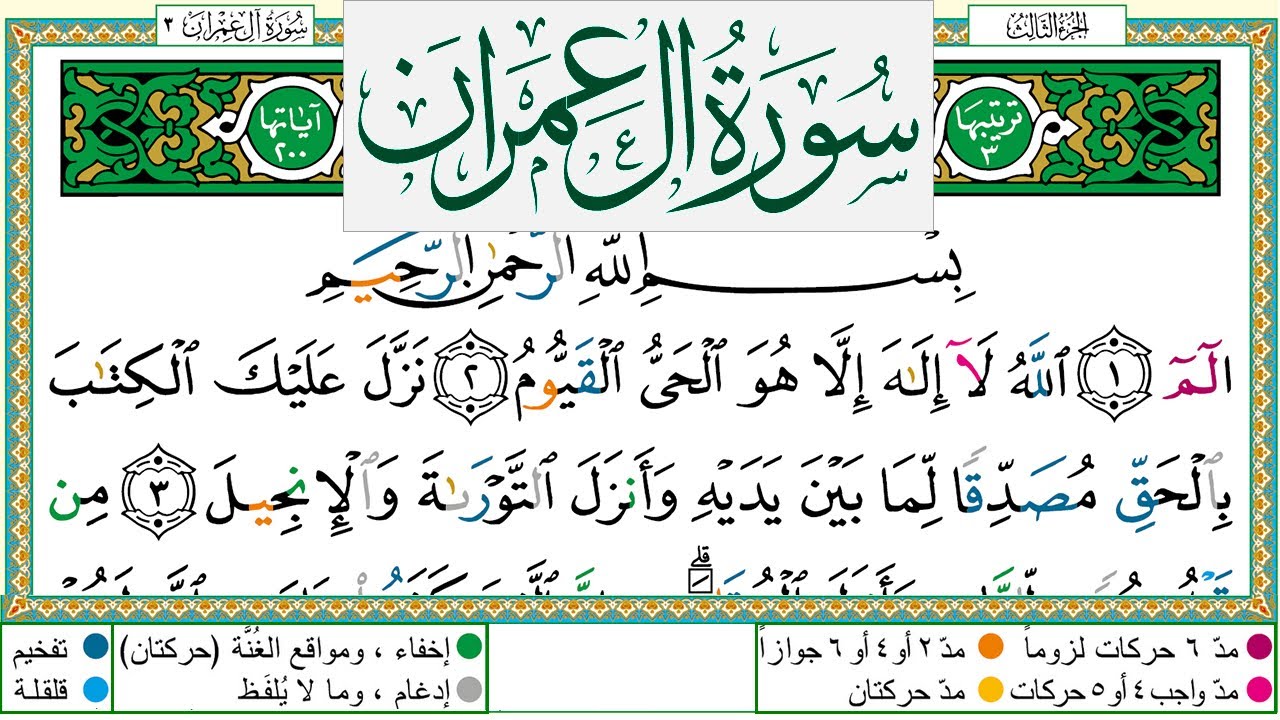 الجزء الثالث
سُورَةُ آلِ عِمْرَان ٣
ترتيبها ٣
سُورَةُ آلِ عِمْرَان
آيَاتها ٢٠٠
بِسْمِ ٱللَّهِ ٱلرَّحْمَٰنِ ٱلرَّحِيمِ
الٓمٓ ١ ٱللَّهُ لَآ إِلَٰهَ إِلَّا هُوَ ٱلْحَىُّ ٱلْقَيُّومُ ٢ نَزَّلَ عَلَيْكَ ٱلْكِتَٰبَ
بِٱلْحَقِّ مُصَدِّقًا لِّمَا بَيْنَ يَدَيْهِ وَأَنزَلَ ٱلتَّوْرَىٰةَ وَٱلْإِنجِيلَ ٣ مِن
مدّ ٦ حركات لزوماً مدّ ٢ أو ٤ أو ٦ جوازاً
مدّ واجب ٤ أو ٥ حركات مدّ حركتان
إخفاء ، ومواقع الغُنَّة (حركتان) تفخيم
إدغام ، وما لا يُلفَظ قلقلة